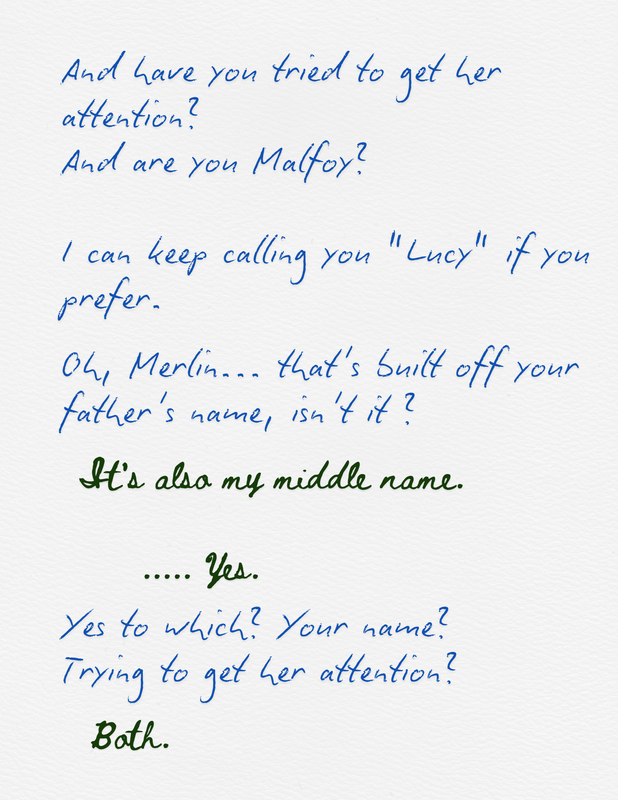 And have you tried to get her
attention?
And are you Malfoy?
I can keep calling you "Lucy" if you
prefer.
Oh, Merlin... that's built off your
father's name, isn't it?
It's also my middle name.
..... Yes.
Yes to which? Your name?
Trying to get her attention?
Both.